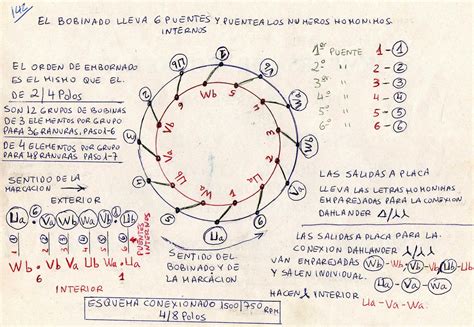 142
EL BOBINADO LLEVA 6 PUENTES Y PUENTEA LOS NUMEROS HOMONIMOS
INTERNOS
EL ORDEN DE EMBORNADO
ES EL MISMO QUE EL
DE 2/4 Polos
SON 12 GRUPOS DE BOBINAS
DE 3 ELEMENTOS POR GRUPO
PARA 36 RANURAS, PASO 1-6
DE 4 ELEMENTOS POR GRUPO
PARA 48 RANURAS. PASO 1-7
SENTIDO DE LA
MARCACION
EXTERIOR
Ua 6 Va Wb Ua Wb 1
PUENTES
INTERNOS
Wb 6 Wb Va Ub Wa 1
INTERIOR
1
Ub
2
Wb
Va
Ua
Wb
5
4
3
2
1
Wa
Ub
Va
Vb
6
1er PUENTE 1-1
2º " 2-2
3º " 3-3
4º " 4-4
5º " 5-5
6º " 6-6
LAS SALIDAS A PLACA
LLEVA LAS LETRAS HOMONIMAS
EMPAREJADAS PARA LA CONEXION
DAHLANDER
LAS SALIDAS A PLACA PARA LA
CONEXION DAHLANDER
VAN EMPAREJADAS Wb-Wb-Vb-Vb-Ub-Ub
Y SALEN INDIVIDUAL.
HACEN INTERIOR Ua-Va-Wa
SENTIDO DEL
BOBINADO Y DE
LA MARCACION
ESQUEMA CONEXIONADO 1500/750 RPM
4/8 Polos